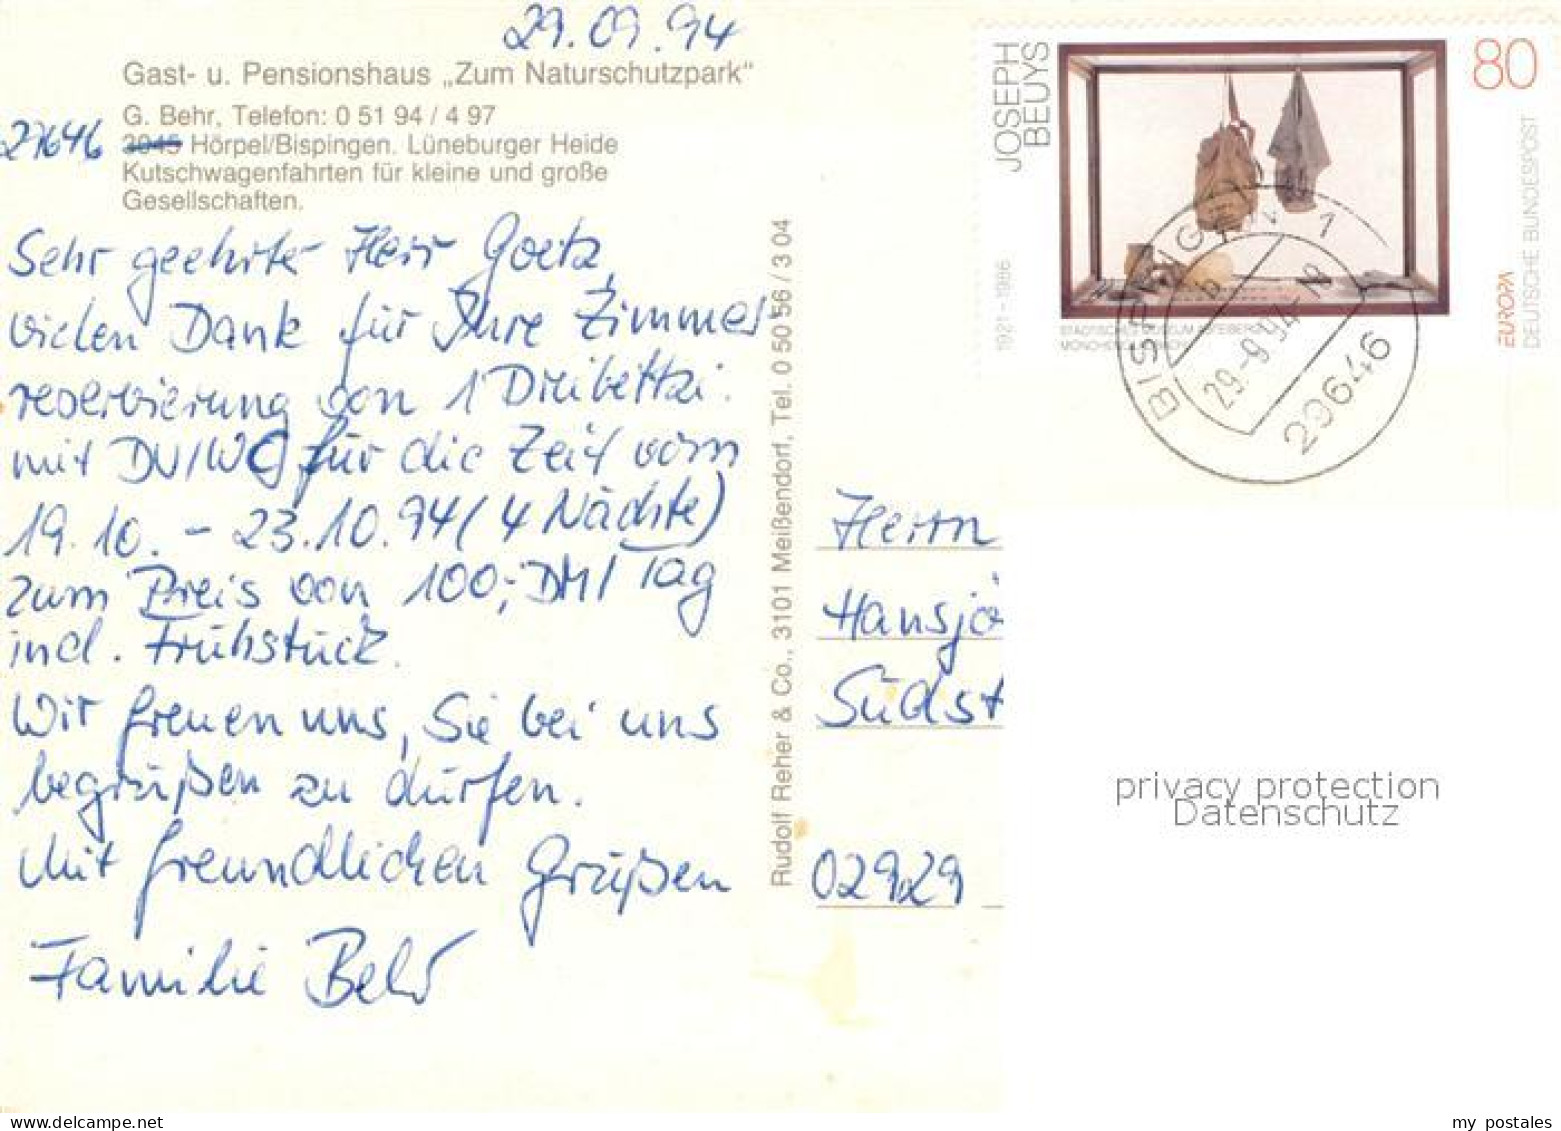 29.09.94
Gast- u. Pensionshaus „Zum Naturschutzpark“
G. Behr, Telefon: 0 51 94 / 4 97
29646 3045 Hörpel/Bispingen. Lüneburger Heide
Kutschwagenfahrten für kleine und große
Gesellschaften.
Sehr geehrter Herr Goetz,
vielen Dank für Ihre Zimmer
reservierung von 1 Dreibettzi.
mit DU/WC für die Zeit vom
19.10. - 23.10.94 (4 Nächte)
zum Preis von 100,- DM/Tag
incl. Frühstück.
Wir freuen uns, Sie bei uns
begrüßen zu dürfen.
Mit freundlichen Grüßen
Familie Behr
Rudolf Reher & Co., 3101 Meißendorf, Tel. 0 50 56 / 3 04
JOSEPH
BEUYS
1921–1986
80
EUROPA
DEUTSCHE BUNDESPOST
STÄDTISCHES MUSEUM ABTEIBERG
BISPINGEN 1
b
29.-9.94-18
29646
Herrn
Hansjö
Südst
02929
privacy protection
Datenschutz
my postales